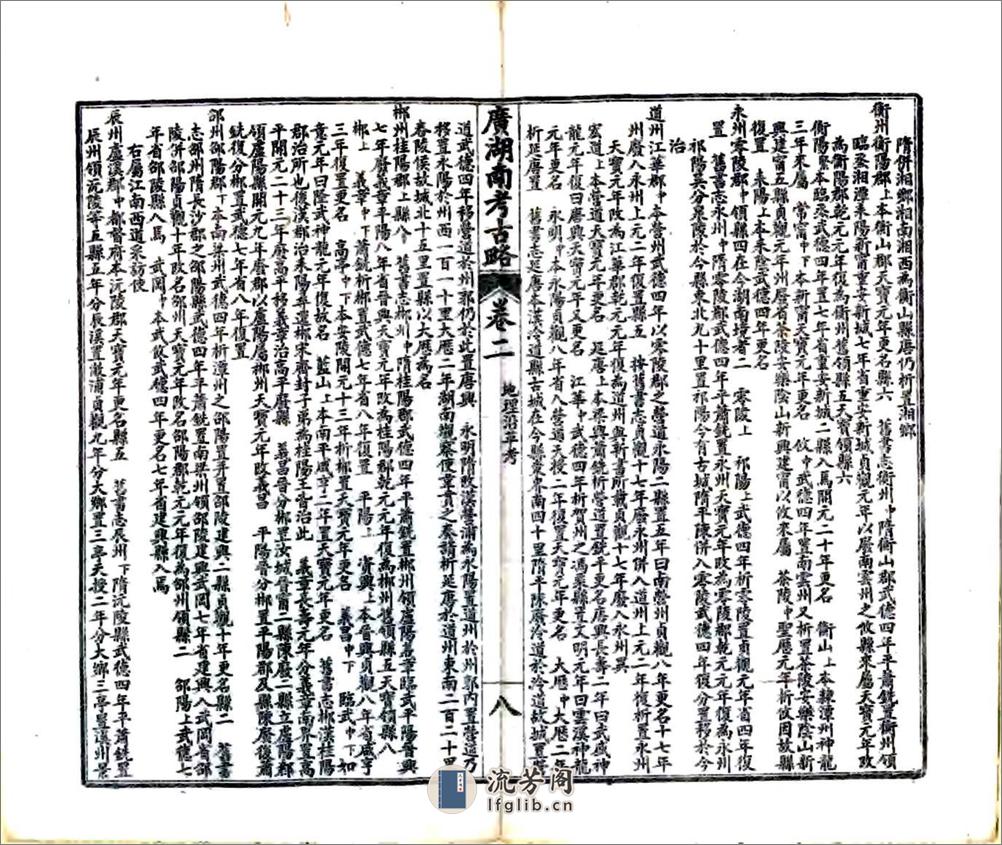 隋併湘鄉湘南湘西為衡山縣唐仍析置湘鄉
衡州衡陽郡上本衡山郡天寶元年更名縣六　舊書志衡州中隋衡山郡武德四年平蕭銑置衡州領
臨烝湘潭耒陽新甯重安新城六縣七年省重安新城貞觀元年以廢南雲州之攸縣來屬天寶元年改
為衡陽郡乾元元年復為衡州舊領縣五天寶領縣六
衡陽緊本臨烝武德四年置七年省重安新城二縣入焉開元二十年更名　衡山上本隸潭州神龍
三年來屬　常甯中下本新甯天寶元年更名　攸中下武德四年置南雲州又析置茶陵安樂陰山新
興建甯五縣貞觀元年州廢省茶陵安樂陰山新興建甯以攸來屬　茶陵中聖歷元年析攸因故縣
復置　耒陽上本耒陰武德四年更名
永州零陵郡中領縣四在今湖南境者二　零陵上　祁陽上武德四年析零陵置貞觀元年省四年復
置　舊書志永州中隋零陵郡武德四年平蕭銑置永州天寶元年改為零陵郡乾元元年復為永州
祁陽吳分泉陵於今縣東北九十里置祁陽今有古城隋平陳併入零陵武德四年復分置移於今
治
道州江華郡中本營州武德四年以零陵郡之營道永陽二縣置五年曰南營州貞觀八年更名十七年
州廢入永州上元二年復置縣五　按舊書志貞觀十七年廢永州併入道州上元二年復析置永州
天寶元年改為江華郡乾元元年復為道州與新書所載貞觀十七年廢入永州異
宏道上本營道天寶元年更名　延唐上本梁興蕭銑析營道置銑平更名唐興長壽二年曰武盛神
龍元年復曰唐興天寶元年又更名　江華中武德四年析賀州之馮乘縣置文明元年曰雲溪神龍
元年復更名　永明中本永陽貞觀八年省入營道天授二年復置天寶元年更名　大歷中大歷二年
析延唐置　舊書志延唐本漢泠道縣古城在今縣東界南四十里隋平陳廢泠道於泠道故城置營
廣湖南考古略　卷二　地理沿革考　八
道武德四年移營道於州郭仍於此置唐興　永明隋改漢營浦為永陽置道州於州郭內置營道乃
移置永陽於州西一百一十里大歷二年湖南觀察使韋貫之奏請析延唐於道州東南二百二十里
舂陵侯故城北十五里置縣以大歷為名
郴州桂陽郡上縣八　舊書志郴州中隋桂陽郡武德四年平蕭銑置郴州領盧陽義章臨武平陽晉興
七年廢義章平陽八年省晉興天寶元年改為桂陽郡乾元元年復為郴州舊領縣五天寶領縣八
郴上　義章中下蕭銑析郴置武德七年省八年復置　平陽上　資興上本晉興貞觀八年省咸亨
三年復置更名　高亭中下本安陵開元十三年析郴置天寶元年更名　義昌中下　臨武中下如
意元年曰隆武神龍元年復故名　藍山上本南平咸亨二年置天寶元年更名　舊書志郴漢桂陽
郡治所也後漢郡治耒陽尋還郴宋齊封子弟為桂陽王皆治此　義章長壽元年分義章南界置高
平開元二十三年廢高平移義章治高平廢縣　義昌晉分郴置汝城晉甯二縣陳廢二縣立盧陽郡
領盧陽縣開元九年廢郡以盧陽屬郴州天寶元年改義昌　平陽晉分郴置平陽郡及縣陳廢後蕭
銑復分郴置武德七年省八年復置
邵州邵陽郡下本南梁州武德四年析潭州之邵陽置并置邵陵建興二縣貞觀十年更名縣二　舊書
志邵州隋長沙郡之邵陽縣武德四年平蕭銑置南梁州領邵陵建興武岡七年省建興入武岡省邵
陵併邵陽貞觀十年改名邵州天寶元年改名邵陽郡乾元元年復為邵州領縣二　邵陽上武德七
年省邵陵縣入焉　武岡中本武攸武德四年更名七年省建興縣入焉
右屬江南西道采訪使
辰州盧溪郡中都督府本沅陵郡天寶元年更名縣五　舊書志辰州下隋沅陵縣武德四年平蕭銑置
辰州領沅陵等五縣五年分辰溪置溆浦貞觀九年分大鄉置三亭天授二年分大鄉三亭置溪州景
流芳阁
lfglib.cn